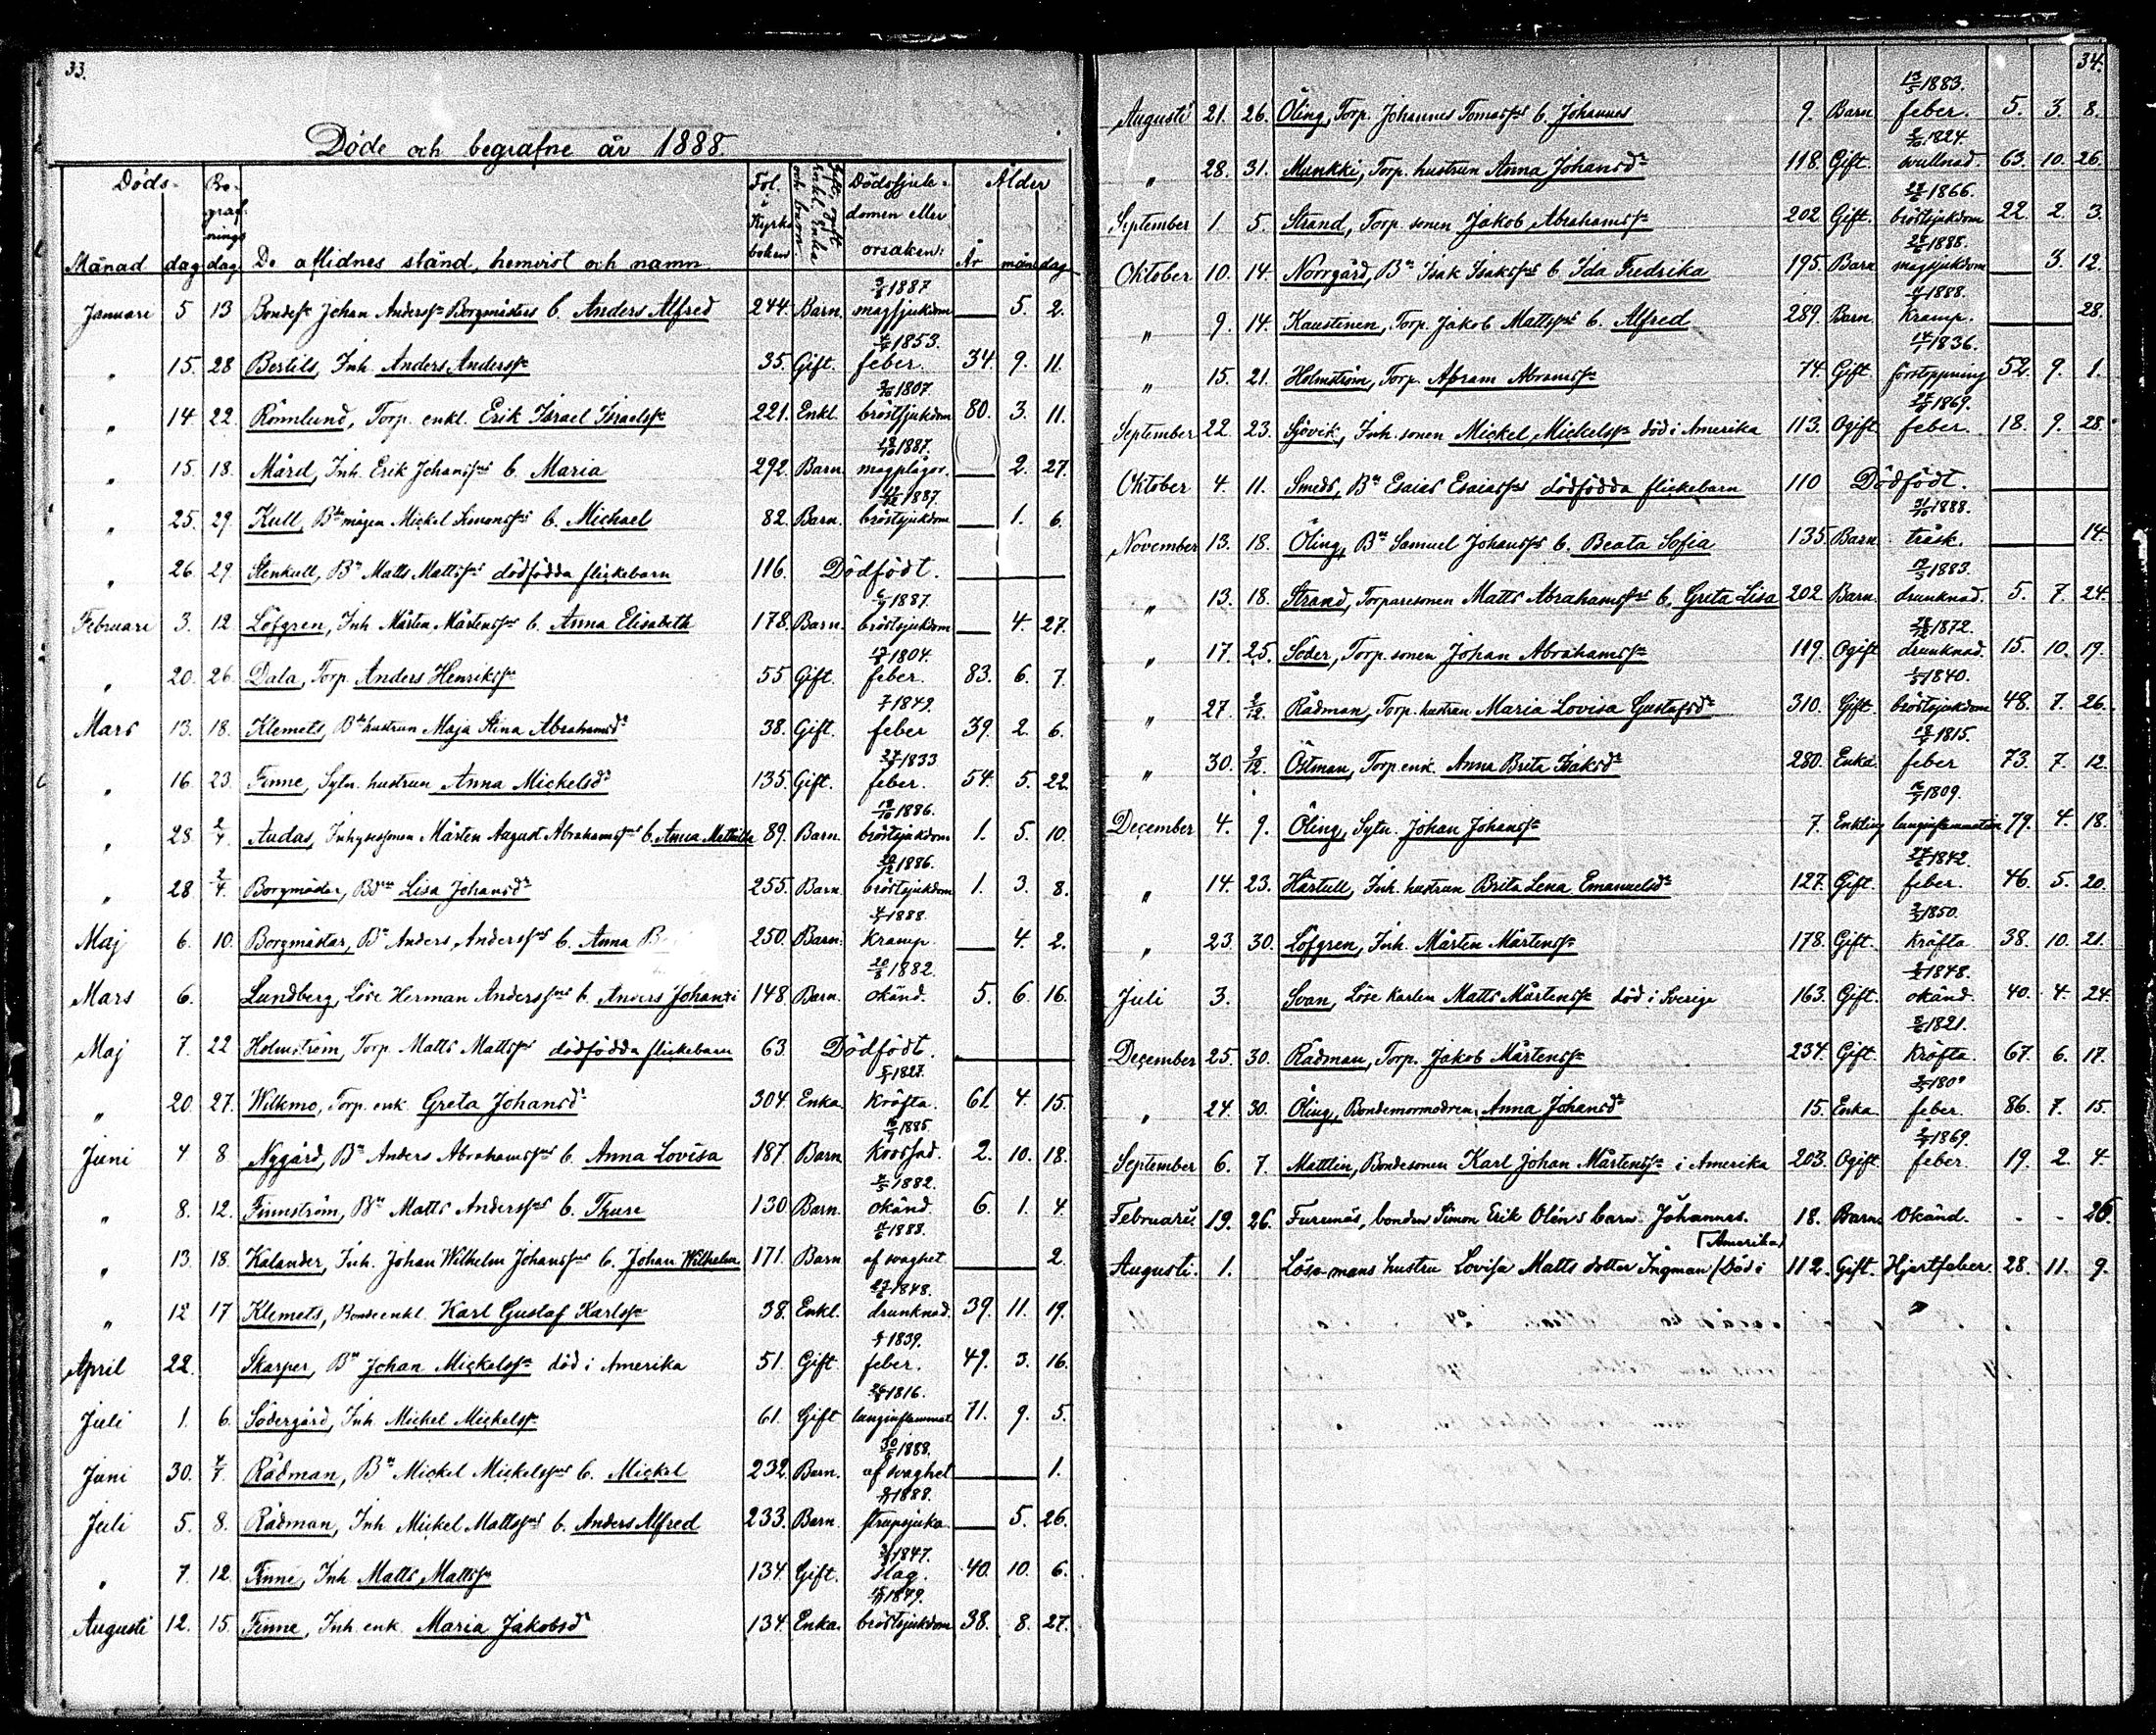 33.
Döde och begrafne år 1888.
Döds- Be- grafnings Fol. i Kyrkoboken Dödssjukdomen eller orsaken: Ålder
Månad dag dag De aflidnes stånd, hemvist och namn År mån dag
3/8 1887
Januari 5 13 Bondes. Johan Anderss:ns Borgmästars b. Anders Alfred 244. Barn. magsjukdom — 5. 2.
4/4 1853.
" 15. 28 Bertils, Inh. Anders Anderss:n 35. Gift. feber. 34 9. 11.
3/10 1807.
" 14 22. Rönnlund, Torp. enkl. Erik Israel Israelss:n 221. Enkl. bröstsjukdom 80. 3. 11.
18/10 1887.
" 15. 18. Mård, Inh. Erik Johanss:ns b. Maria 292. Barn. magplågor. — 2. 27.
19/12 1887.
" 25. 29. Kull, B:de mågen Mickel Simonss:ns b. Michael 82. Barn. bröstsjukdom — 1. 6.
" 26 29. Stenkull, B:n Matts Mattss:ns dödfödda flickebarn 116. Dödfödt. —
6/9 1887.
Februari 3. 12. Löfgren, Inh Mårten Mårtenss:ns b. Anna Elisabeth 178. Barn. bröstsjukdom — 4. 27.
13/8 1804.
" 20. 26. Dala, Torp. Anders Henrikss:n 55 Gift. feber. 83. 6. 7.
7/1 1849.
Mars 13. 18. Klemets, B:de hustrun Maja Stina Abrahamsd:r 38. Gift. feber 39. 2. 6.
1833
" 16 23. Finne, Sytn. hustrun Anna Mickelsd:r 135. Gift. feber. 54. 5. 22.
18/10 1886.
" 28. 2/4. Audas, Inhysessonen Mårten August Abrahamss:ns b. Anna Mathilda 89. Barn. bröstsjukdom 1. 5. 10.
20/12 1886.
" 28 2/4. Borgmästar, Lisa Johansd:r 255. Barn. bröstsjukdom 1. 3. 8.
4/1 1888.
Maj 6. 10. Borgmästar, B:n Anders Anderss:ns b. Anna 250. Barn. Kramp. — 4. 2.
20/8 1882.
Mars 6. Lundberg, Löse Herman Anderss:ns b. Anders Johannes 148. Barn. okänd. 5. 6. 16.
Maj 7. 22 Holmström, Torp. Matts Mattss:ns dödfödda flickebarn 63. Dödfödt. —
5/1 1827.
" 20. 27. Wilkmo, Torp. enk. Greta Johansd:r 304. Enka. Kräfta. 61. 4. 15.
16/7 1885.
Juni 4 8 Nygård, B:n Anders Abrahamss:ns b. Anna Lovisa 187. Barn 2. 10. 18.
4/5 1882.
" 8. 12. Finnström, B:n Matts Anderss:ns b. Thure 130. Barn. okänd. 6. 1. 4.
11/6 1888.
" 13. 18. Kalander, Inh. Johan Wilhelm Johanss:ns b. Johan Wilhelm 171. Barn af svaghet — 2.
23/6 1848.
" 12 17 Klemets, Bonde enkl. Karl Gustaf Karlss:n 38. Enkl. drunknad. 39. 11. 19.
1839.
April 22. Skarper, B:n Johan Mickelss:n död i Amerika 51. Gift. feber. 49. 3. 16.
26/9 1816.
Juli 1. 6. Södergård, Inh. Mickel Mickelss:n 61. Gift lunginflammat. 71. 9. 5.
30/6 1888.
Juni 30. 4/7. Rådman, B:n Mickel Mickelss:ns b. Mickel 232. Barn. af svaghet — 1.
1888.
Juli 5. 8. Rådman, Inh Mickel Mattss:ns b. Anders Alfred 233. Barn. strupsjuka — 5. 26.
1847.
" 7. 12. Finne, Inh. Matts Mattss:n 134. Gift. Slag. 40. 10. 6.
15/11 1849.
Augusti 12. 15. Finne, Inh. enk. Maria Jakobsd:r 134. Enka. bröstsjukdom 38. 8. 27.
34.
13/5 1883.
Augusti 21. 26. Öling, Torp. Johannes Tomass:ns b. Johannes 9. Barn feber. 5. 3. 8.
2/10 1824.
" 28. 31. Munkki, Torp. hustrun Anna Johansd:r 118. Gift. svullnad. 63. 10. 26.
1866.
September 1. 5. Strand, Torp. sonen Jakob Abrahamss:n 202 Gift. bröstsjukdom 22. 2. 3.
28/6 1888.
Oktober 10. 14. Norrgård, B:n Isak Isakss:ns b. Ida Fredrika 195. Barn magsjukdom — 3. 12.
11/9 1888.
" 9. 14. Kaustinen, Torp. Jakob Mattss:ns b. Alfred 289. Barn. Kramp. — 28.
14/1 1836.
" 15. 21. Holmström, Torp. Abram Abramss:n 74. Gift. förstoppning 52. 9. 1.
1869.
September 22. 23. Sjövik, Inh. sonen Mickel Mickelss:n död i Amerika 113. Ogift feber. 18. 9. 28.
Oktober 4. 11. Smeds, B:n Esaias Esaiass:ns dödfödda flickebarn 110 Dödfödt. —
31/10 1888.
November 13. 18. Öling, B:n Samuel Johanss:ns b. Beata Sofia 135. Barn. trösk. — 14.
19/3 1883.
" 13. 18. Strand, Torparesonen Matts Abrahamss:ns b. Greta Lisa 202 Barn. drunknad. 5. 7. 24.
28/12 1872.
" 17. 25. Söder, Torp. sonen Johan Abrahamss:n 119. Ogift drunknad. 15. 10. 19.
1840.
" 27. 2/12. Rådman, Torp. hustrun Maria Lovisa Gustafsd:r 310. Gift. bröstsjukdom 48. 7. 26.
18/4 1815.
" 30. 2/12. Östman, Torp. enk. Anna Brita Isaksd:r 280. Enka. feber 73. 7. 12.
16/7 1809.
December 4. 9. Öling, Sytn. Johan Johanss:n 7. Enkling lunginflammation 79. 4. 18.
1842.
" 14. 23. Hårtull, Inh. hustrun Brita Lena Emanuelsd:r 127. Gift. feber. 46. 5. 20.
2/2 1850.
" 23. 30. Löfgren, Inh. Mårten Mårtenss:n 178. Gift. Kräfta. 38. 10. 21.
1848.
Juli 3. Svan, Löse karlen Matts Mårtenss:n död i Sverige 163. Gift. okänd. 40. 4. 24.
8/6 1821.
December 25. 30. Rådman, Torp. Jakob Mårtenss:n 234. Gift. Kräfta. 67. 6. 17.
" 24. 30. Öling, Bondemormodren Anna Johansd:r 15. Enka. feber. 86. 7. 15.
2/7 1869.
September 6. 7. Mattlin, Bondesonen Karl Johan Mårtenss:n i Amerika 203. Ogift. feber. 19. 2. 4.
Februari. 19. 26. Furunäs, bonden Simon Erik Oléns barn Johannes. 18. Barn. Okänd. - - 26.
Augusti. 1. Löse mans hustru Lovisa Matts dotter Ingman (Död i Amerika) 112. Gift. Hjertfeber. 28. 11. 9.